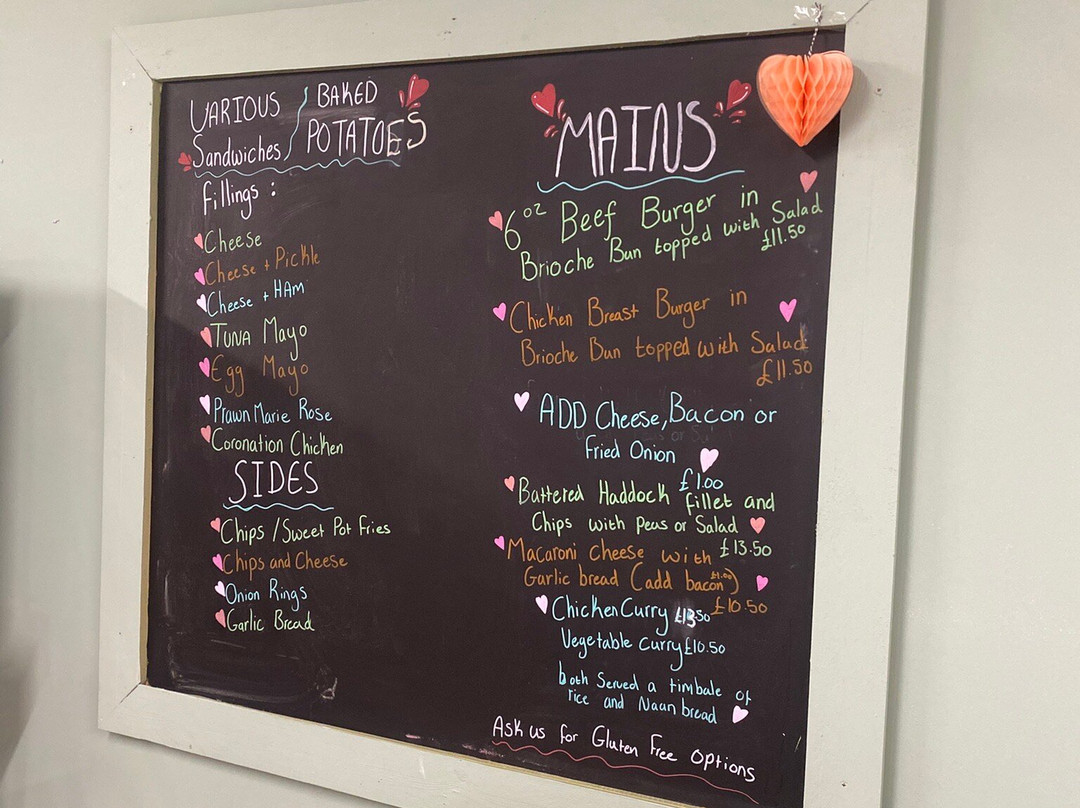 VARIOUS
Sandwiches / BAKED
POTATOES
fillings :
Cheese
Cheese + Pickle
Cheese + HAm
TUNA Mayo
Egg Mayo
Prawn Marie Rose
Coronation Chicken
SIDES
Chips / Sweet Pot Fries
Chips and Cheese
Onion Rings
Garlic Bread
MAINS
6oz Beef Burger in
Brioche Bun topped with Salad
£11.50
Chicken Breast Burger in
Brioche Bun topped with Salad
£11.50
ADD Cheese, Bacon or
Fried Onion
£1.00
Battered Haddock fillet and
Chips with peas or Salad
£13.50
Macaroni cheese with
Garlic bread (add bacon £1.00)
£10.50
Chicken Curry £13.50
Vegetable curry £10.50
both Served a timbale of
rice and Naan bread
Ask us for Gluten Free options